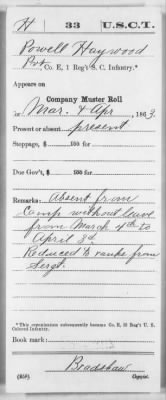 H 33 U.S.C.T.
Powell Haywood
Pvt, Co. E, 1 Reg't S. C. Infantry.*
Appears on
Company Muster Roll
for Mar. & Apr, 1863.
Present or absent present
Stoppage, $ 100 for
Due Gov't, $ 100 for
Remarks: Absent from
Camp without leave
from March 4th to
April 3d
Reduced to ranks from
Sergt.
* This organization subsequently became Co. E, 33 Reg't U. S.
Colored Infantry.
Book mark:
Bradshaw
(858) Copyist.